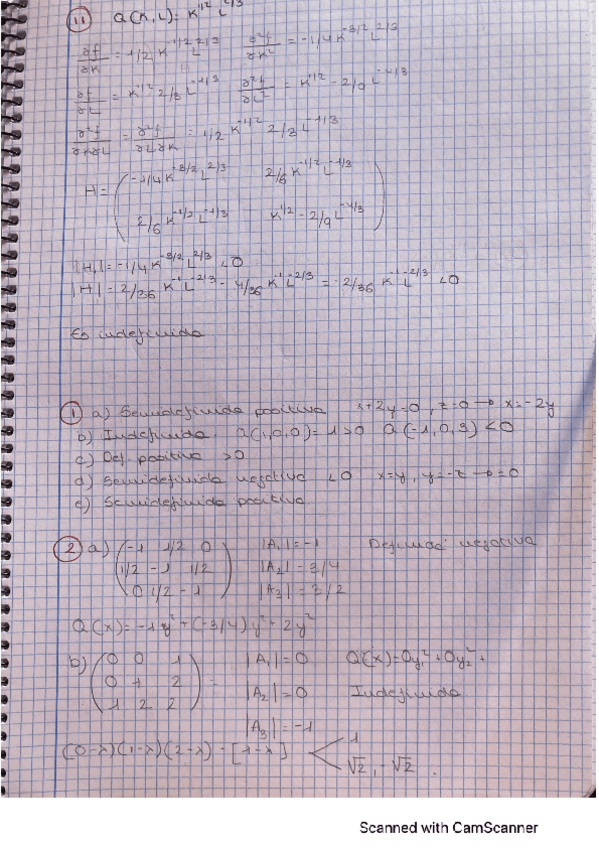 11 Q(K,L) = K^1/2 L^2/3
∂f/∂K = 1/2 K^-1/2 L^2/3 ∂²f/∂K² = -1/4 K^-3/2 L^2/3
∂f/∂L = K^1/2 2/3 L^-1/3 ∂²f/∂L² = K^1/2 - 2/9 L^-4/3
∂²f/∂K∂L = ∂²f/∂L∂K = 1/2 K^-1/2 2/3 L^-1/3
H = ( -1/4 K^-3/2 L^2/3 2/6 K^-1/2 L^-1/3
2/6 K^-1/2 L^-1/3 K^1/2 - 2/9 L^-4/3 )
|H₁| = -1/4 K^-3/2 L^2/3 < 0
|H| = 2/36 K^-1 L^-2/3 - 4/36 K^-1 L^-2/3 = -2/36 K^-1 L^-2/3 < 0
Es indefinida
1 a) Semidefinida positiva x+2y=0, z=0 → x=-2y
b) Indefinida. Q(1,0,0)=1>0 Q(-1,0,3)<0
c) Def. positiva >0
d) Semidefinida negativa <0 x=y, y=-z → =0
e) Semidefinida positiva
2 a) ( -1 1/2 0 |A₁| = -1 Definida negativa
1/2 -1 1/2 |A₂| = 3/4
0 1/2 -1 ) |A₃| = -3/2
Q(x) = -1y² + (-3/4)y² + 2y²
b) ( 0 0 1 |A₁| = 0 Q(x) = 0y₁² + 0y₂² +
0 1 2 |A₂| = 0 Indefinida
1 2 2 ) = |A₃| = -1
(0-λ)(1-λ)(2-λ) - [1-λ] < 1
√2, -√2.
Scanned with CamScanner